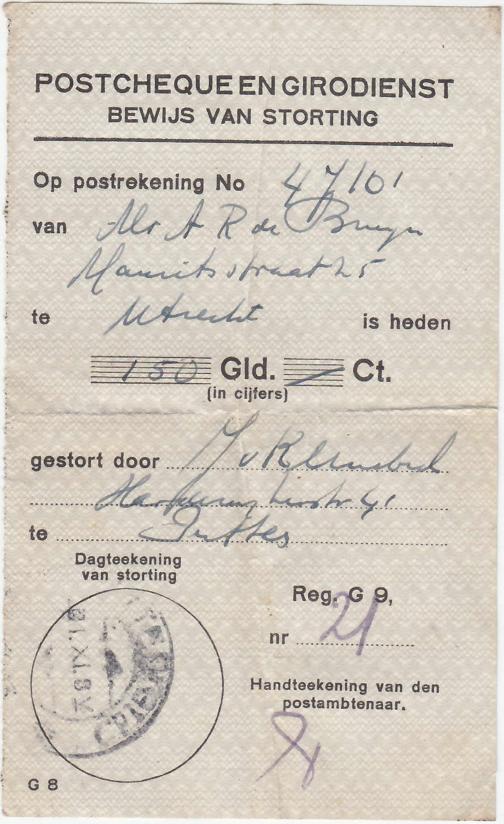 POSTCHEQUE EN GIRODIENST
BEWIJS VAN STORTING
Op postrekening No 47101
van Mr A R de Bruyn
Mauritsstraat 25
te Utrecht is heden
150 Gld. — Ct.
(in cijfers)
gestort door J v
41
te Putten
Dagteekening
van storting
Reg. G 9,
nr 21
Handteekening van den
postambtenaar.
G 8